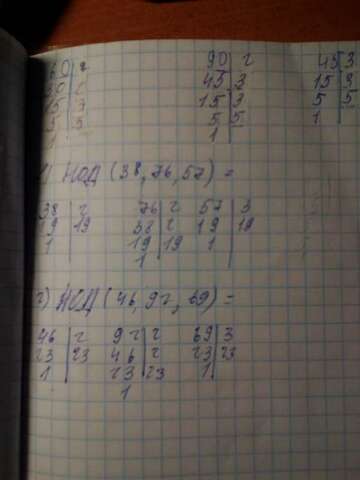 60 2 90 2 45 3
30 2 45 3 15 3
15 3 15 3 5 5
5 5 5 5 1
1 1
НОД (38, 76, 57) =
38 2 76 2 57 3
19 19 38 2 19 19
1 19 19 1
1
г) НОД (46, 92, 69) =
46 2 92 2 69 3
23 23 46 2 23 23
1 23 23 1
1